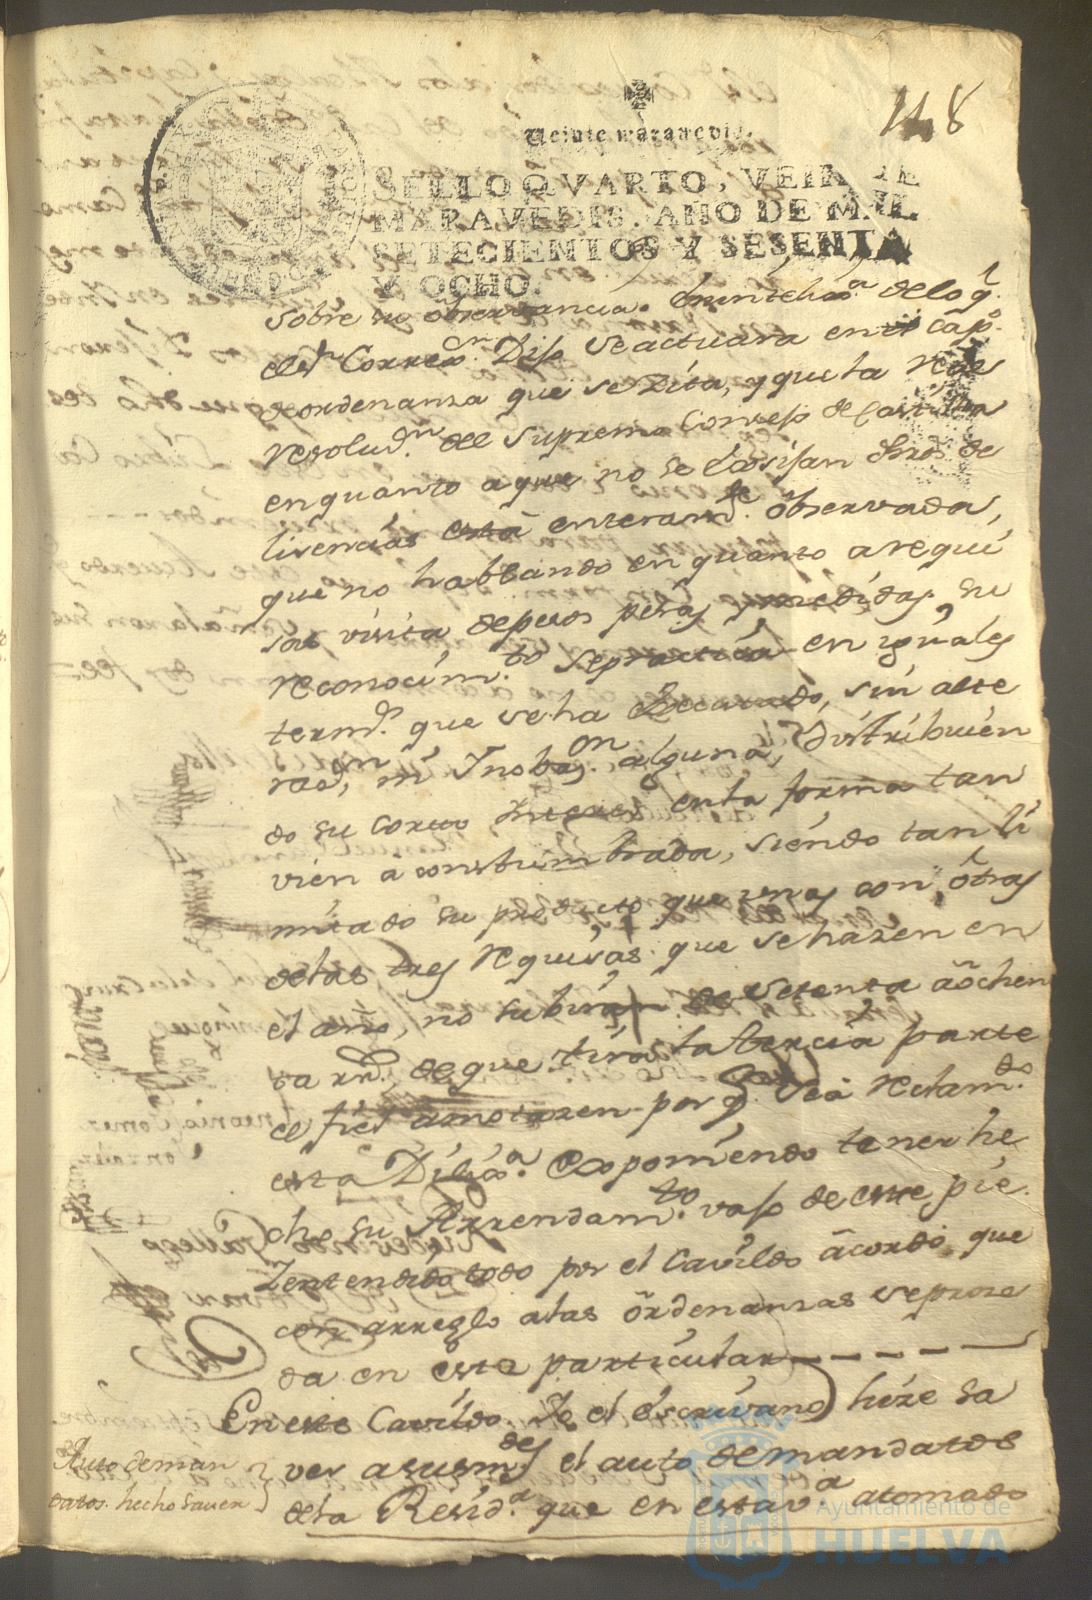 118
Veinte maravedis.
SELLO QVARTO, VEINTE
MARAVEDIS, AÑO DE MIL
SETECIENTOS Y SESENTA
Y OCHO.
sobre su observancia. de lo q.
el Sr. Correxr. Dijo se actuara en el cap.o
de ordenanza que se zita, y que la Rl.
resoluon. del Supremo Consejo de Castilla
en quanto a que no se den
lizencias está enteramte. observada,
que no hablando en quanto a requi
sas visita, de pesos pesas y medidas, su
reconocimto. se practica en iguales
termos. que se ha sin alte
raon, ni Ynobaon. alguna, distribuien
do su corto en la forma tan
vien aconstumbrada, siendo tan li
mitado su producto que unas con, otras
de las tres requisas que se hazen en
el año, no subiran de setenta a ochen
ta rrs. de que tira la tercia parte
el fiel amotazen por q.n sea reclamdo.
esta Dilixa. exponiendo tener he
cho su Arrendamto. vajo de este pie.
Y entendido todo por el Cavildo acordó que
con arreglo a las ordenanzas se proze
da en este particular
En este Cavildo Yo el escrivano hize sa
ver a sus mdes. el auto de mandatos
de la Resida. que en esta va. a tomado
Auto de man
datos. hecho saver
Ayuntamiento de
HUELVA